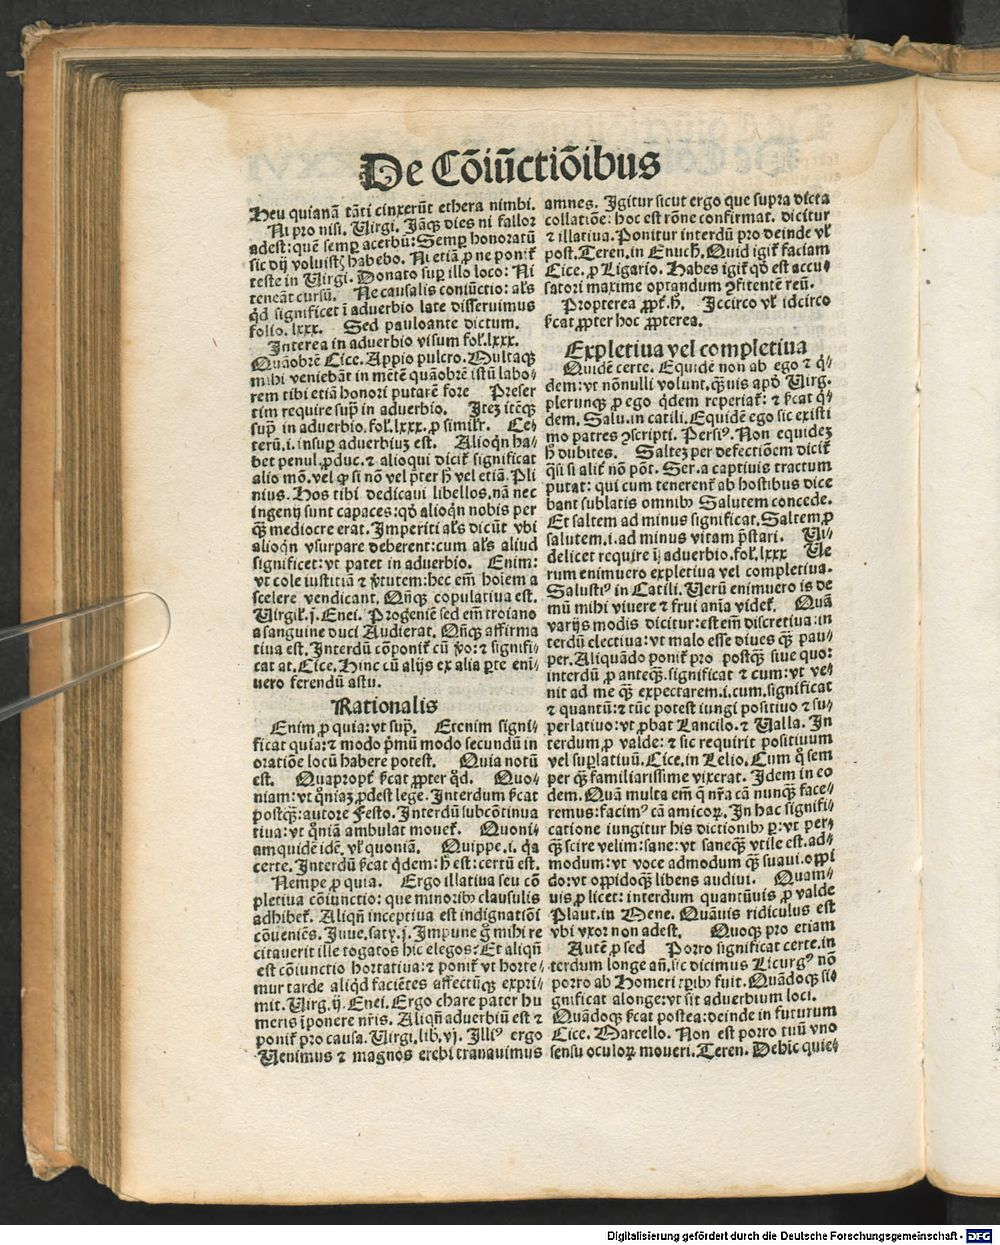 De Cōiūctiōibus
Heu quianā tāti cinxerūt ethera nimbi.
Ni pro nisi. Virgi. Jāqꝫ dies ni fallor
adest: quē semꝑ acerbū: Semꝑ honoratū
sic dij voluistꝭ habebo. Ni etiā ꝓ ne poniť
teste in Virgi. Donato suꝑ illo loco: Ni
teneāt cursū. Ne causalis coniūctio: als
qd significet ī aduerbio late disseruimus
folio. lxxx. Sed pauloante dictum.
Interea in aduerbio visum fol. lxxx.
Quāobrē Cice. Appio pulcro. Multaqꝫ
mihi veniebāt in mētē quāobrē istū labo⸗
rem tibi etiā honori putarē fore Preser
tim require supͥ in aduerbio. Iteꝫ itēqꝫ
supͥ in aduerbio. fol. lxxx. ꝓ simiť. Ce⸗
terū .i. insuꝑ aduerbiuꝫ est. Alioqn ha⸗
bet penul. ꝓduc. ⁊ alioqui diciť significat
alio mō. vel ꝙ si nō vel pͥter hͨ vel etiā. Pli
nius. Hos tibi dedicaui libellos. nā nec
ingenij sunt capaces: qd alioqn nobis per
qꝫ mediocre erat. Imperiti als dicūt vbi
alioqn vsurpare deberent: cum als aliud
significet: vt patet in aduerbio. Enim:
vt cole iustitiā ⁊ vͥtutem: hec em hoiem a
scelere vendicant. Qnqꝫ copulatiua est.
Virgil. j. Enei. Progeniē sed em troiano
a sanguine duci Audierat. Qnqꝫ affirma
tiua est. Interdū cōponiť cū vͦo: ⁊ signifi⸗
cat at. Cice. Hinc cū alijs ex alia ꝑte eni⸗
uero ferendū astu.
Rationalis
Enim ꝓ quia: vt supͥ. Etenim signi⸗
ficat quia: ⁊ modo pͥmū modo secundū in
oratiōe locū habere potest. Quia notū
est. Quapropť ſicat ꝓpter qd. Quo⸗
niam: vt qͦniaꝫ ꝓdest lege. Interdum ſicat
postqꝫ: autore Festo. Interdū subcōtinua
tiua: vt qͦniā ambulat moueť. Quoni⸗
amquidē idē. vl quoniā. Quippe .i. qa
certe. Interdū ſicat qdem: hͨ est: certū est.
Nempe ꝓ quia. Ergo illatiua seu cō
pletiua cōiunctio: que minoribꝰ clausulis
adhibeť. Aliqn inceptiua est indignatiōi
cōueniēs. Juue. saty. j. Impune gͦ mihi re
citauerit ille togatos hic elegos? Et aliqn
est cōiunctio hortatiua: ⁊ poniť vt horte⸗
mur tarde aliqd faciētes affectūqꝫ expri⸗
mit. Virg. ij. Enei. Ergo chare pater hu
meris īponere nr̄is. Aliqn aduerbiū est ⁊
poniť pro causa. Virgi. lib. vj. Illiꝰ ergo
Venimus ⁊ magnos erebi tranauimus
amnes. Igitur sicut ergo que supra dicta
collatiōe: hoc est rōne confirmat. dicitur
⁊ illatiua. Ponitur interdū pro deinde vl
post. Teren. in Enuch. Quid igiť faciam
Cice. ꝓ Ligario. Habes igiť qd est accu⸗
satori maxime optandum ꝯfitentē reū.
Propterea ꝓpť hͨ. Iccirco vl idcirco
ſicat ꝓpter hoc ꝓpterea.
Expletiua vel completiua
Quidē certe. Equidē non ab ego ⁊ q⸗
dem: vt nōnulli volunt. qꝫuis apd Virg.
plerunqꝫ ꝓ ego qdem reperiať: ⁊ ſicat q⸗
dem. Salu. in catili. Equidē ego sic existi
mo patres ꝯscripti. Persiꝰ. Non equideꝫ
hͨ dubites. Salteꝫ per defectiōem diciť
qsi si aliť nō pōt. Ser. a captiuis tractum
putat: qui cum tenerenť ab hostibus dice
bant sublatis omnibꝰ Salutem concede.
Et saltem ad minus significat. Saltem ꝓ
salutem .i. ad minus vitam pͥstari. Ui⸗
delicet require ī aduerbio. fol. lxxx Ue
rum enimuero expletiua vel completiua.
Salustiꝰ in Catili. Verū enimuero is de
mū mihi viuere ⁊ frui anīa videť. Quā
varijs modis dicitur: est em discretiua: in
terdū electiua: vt malo esse diues qꝫ pau⸗
per. Aliquādo poniť pro postqꝫ siue quo:
interdū ꝓ anteqꝫ. significat ⁊ cum: vt ve⸗
nit ad me qꝫ expectarem .i. cum. significat
⁊ quantū: ⁊ tūc potest iungi positiuo ⁊ su⸗
perlatiuo: vt ꝓbat Lancilo. ⁊ Valla. In
terdum ꝓ valde: ⁊ sic requirit positiuum
vel superlatiuū. Cice. in Lelio. Cum qͦ sem
per qꝫ familiarissime vixerat. Idem in eo
dem. Quā multa em q nr̄a cā nunqꝫ face⸗
remus: facimꝰ cā amicoꝝ. In hac signifi⸗
catione iungitur his dictionibꝰ ꝑ: vt per⸗
qꝫ scire velim: sane: vt saneqꝫ vtile est. ad⸗
modum: vt voce admodum qꝫ suaui. oppi
do: vt oppidoqꝫ libens audiui. Quam⸗
uis ꝓ licet: interdum quantūuis ꝓ valde
Plaut. in Mene. Quāuis ridiculus est
vbi vxor non adest. Quoqꝫ pro etiam
Autē ꝓ sed Porro significat certe. in
terdum longe an. sic dicimus Licurgꝰ nō
porro ab Homeri tꝑibꝰ fuit. Quādoqꝫ si⸗
gnificat alonge: vt sit aduerbium loci.
Quādoqꝫ ſicat postea: deinde in futurum
Cice. Marcello. Non est porro tuū vno
sensu oculoꝝ moueri. Teren. Dehic quie⸗
Digitalisierung gefördert durch die Deutsche Forschungsgemeinschaft - DFG